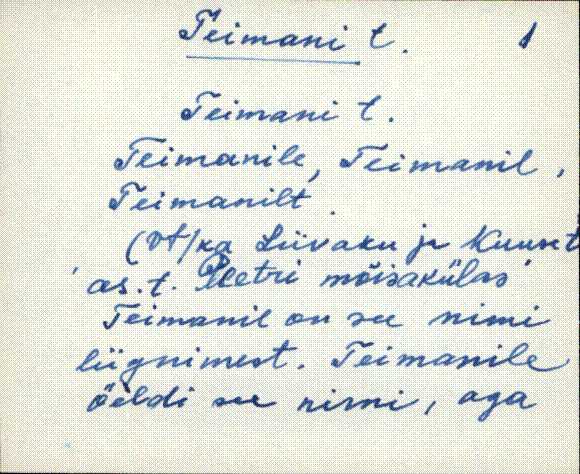 Teimani t. 1
Teimani t.
Teimanile, Teimanil,
Teimanilt.
(Vt/ka Liivaku ja Kuuset
as. t. Peetri mõisakülas
Teimanil on see nimi
liignimest. Teimanile
öeldi see nimi, aga